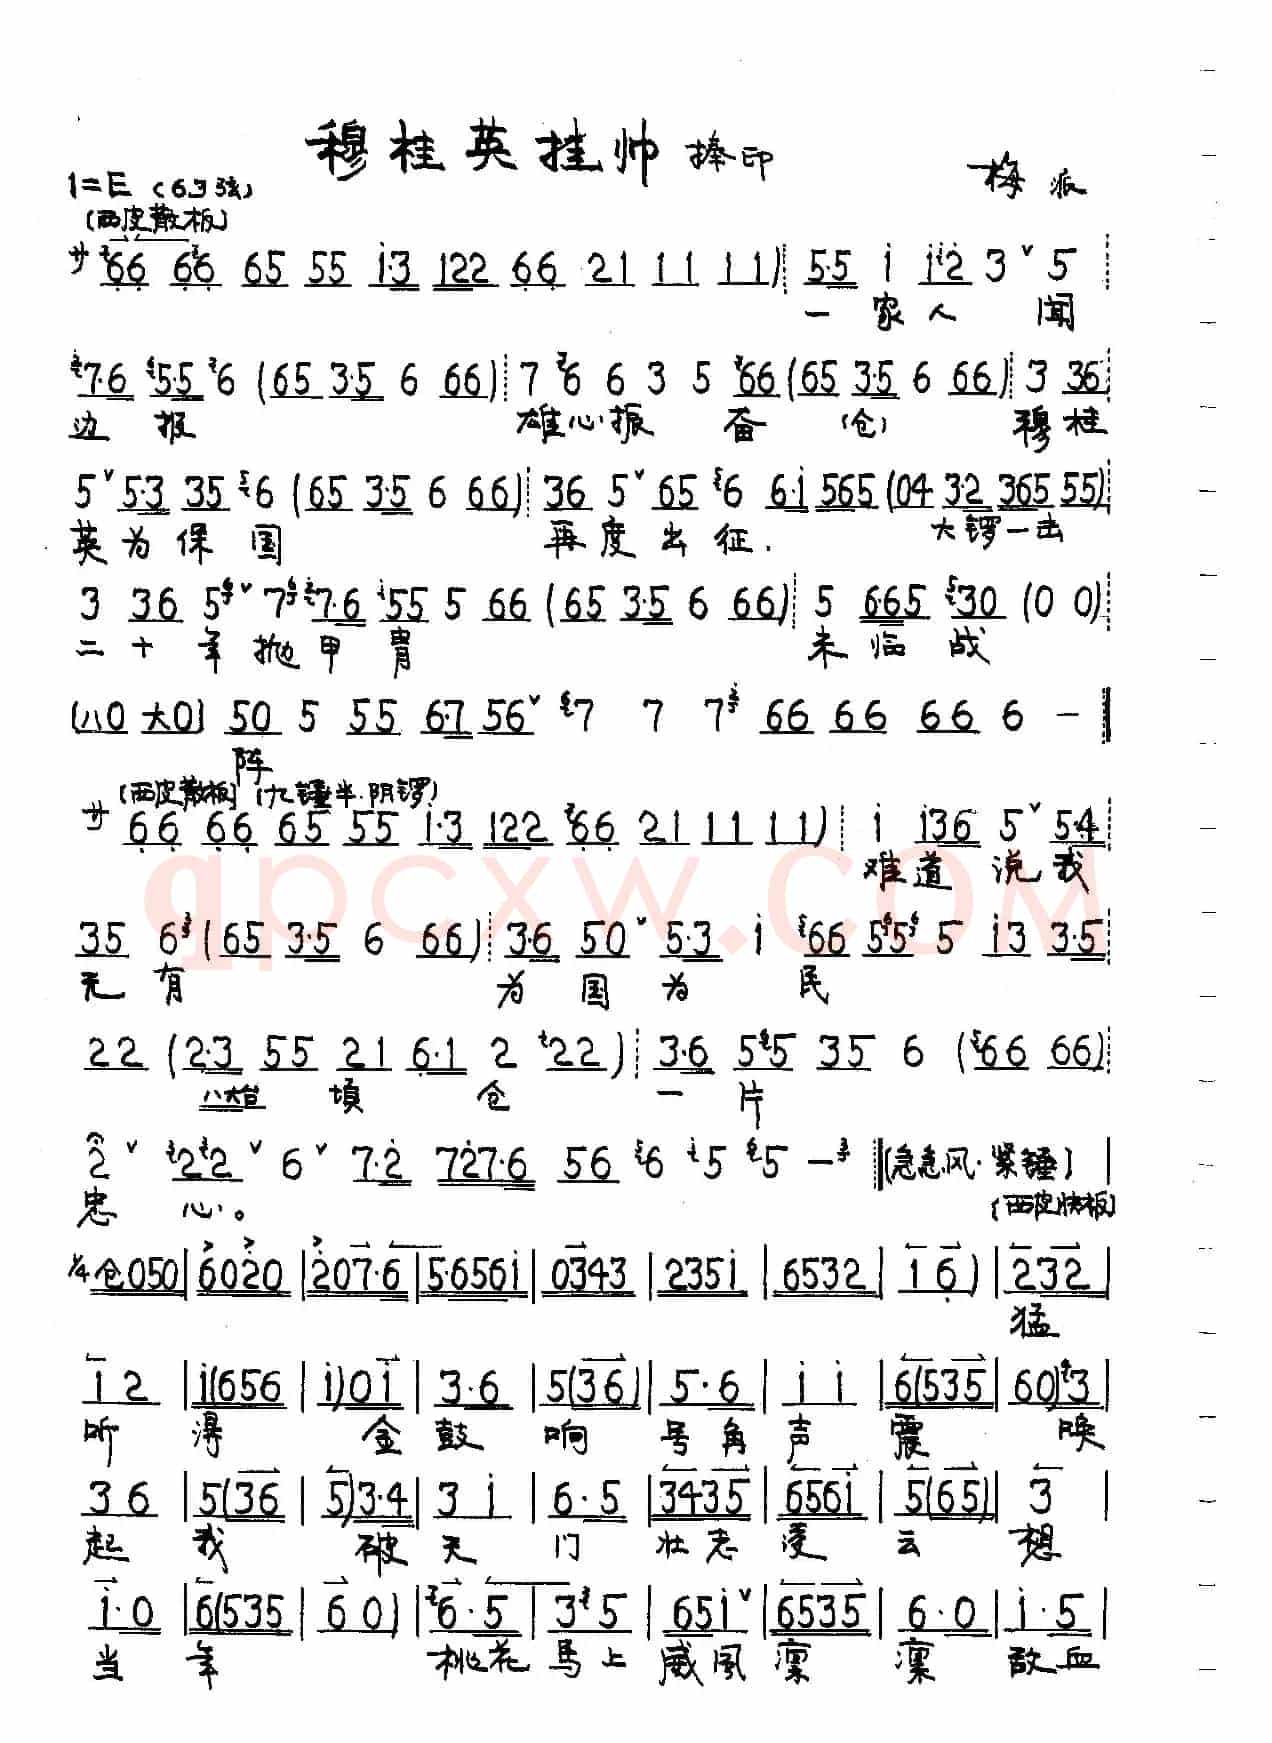 穆桂英挂帅 捧印
梅派
1=E（63弦）
（西皮散板）
サ 66 66 65 55 i·3 122 66 21 11 11) 5·5 i ii2 3 ˇ 5
一 家 人 闻
7·6 5·5 6 (65 3·5 6 66) 7 6 6 3 5 66 (65 3·5 6 66) 3 36
边 报 雄心振 奋 (仓) 穆桂
5 ˇ 5·3 35 6 (65 3·5 6 66) 36 5 ˇ 65 6 6·i 565 (04 3·2 365 55)
英为保国 再度出征. 大锣一击
3 36 5 ˇ 7 7·6 55 5 66 (65 3·5 6 66) 5 6·65 30 (0 0)
二十年抛甲胄 未临战
(八0 大0) 50 5 55 6·7 56 ˇ 7 7 7 66 66 66 6 —
阵
(西皮散板) (九锤半.阴锣)
サ 66 66 65 55 i·3 122 66 21 11 11) i i36 5 ˇ 54
难道说我
35 6 (65 3·5 6 66) 3·6 50 ˇ 5·3 i 66 55 5 i3 3·5
无有 为国为民
22 (2·3 55 21 6·1 2 22) 3·6 55 35 6 (66 66)
八大台 填 仓 一 片
2 ˇ 22 ˇ 6 ˇ 7·2 727·6 56 6 5 5 — (急急风·紧锤)
忠 心。 (西皮快板)
1/4 仓050 | 6020 | 207·6 | 5·656i | 0343 | 235i | 6532 | 1 6) | 232 |
猛
i 2 | i(656 | i)0i | 3·6 | 5(36) | 5·6 | i i | 6(535 | 60)3 |
听 得 金 鼓 响 号角 声 震 唤
36 | 5(36 | 5)3·4 | 3 i | 6·5 | 3435 | 656i | 5(65) | 3 |
起 我 破 天 门 壮志 凌 云 想
i·0 | 6(535 | 60) | 6·5 | 3 5 | 65i ˇ | 6535 | 6·0 | i·5 |
当 年 桃花 马上 威风 凛 凛 敌血
qpcxw.com